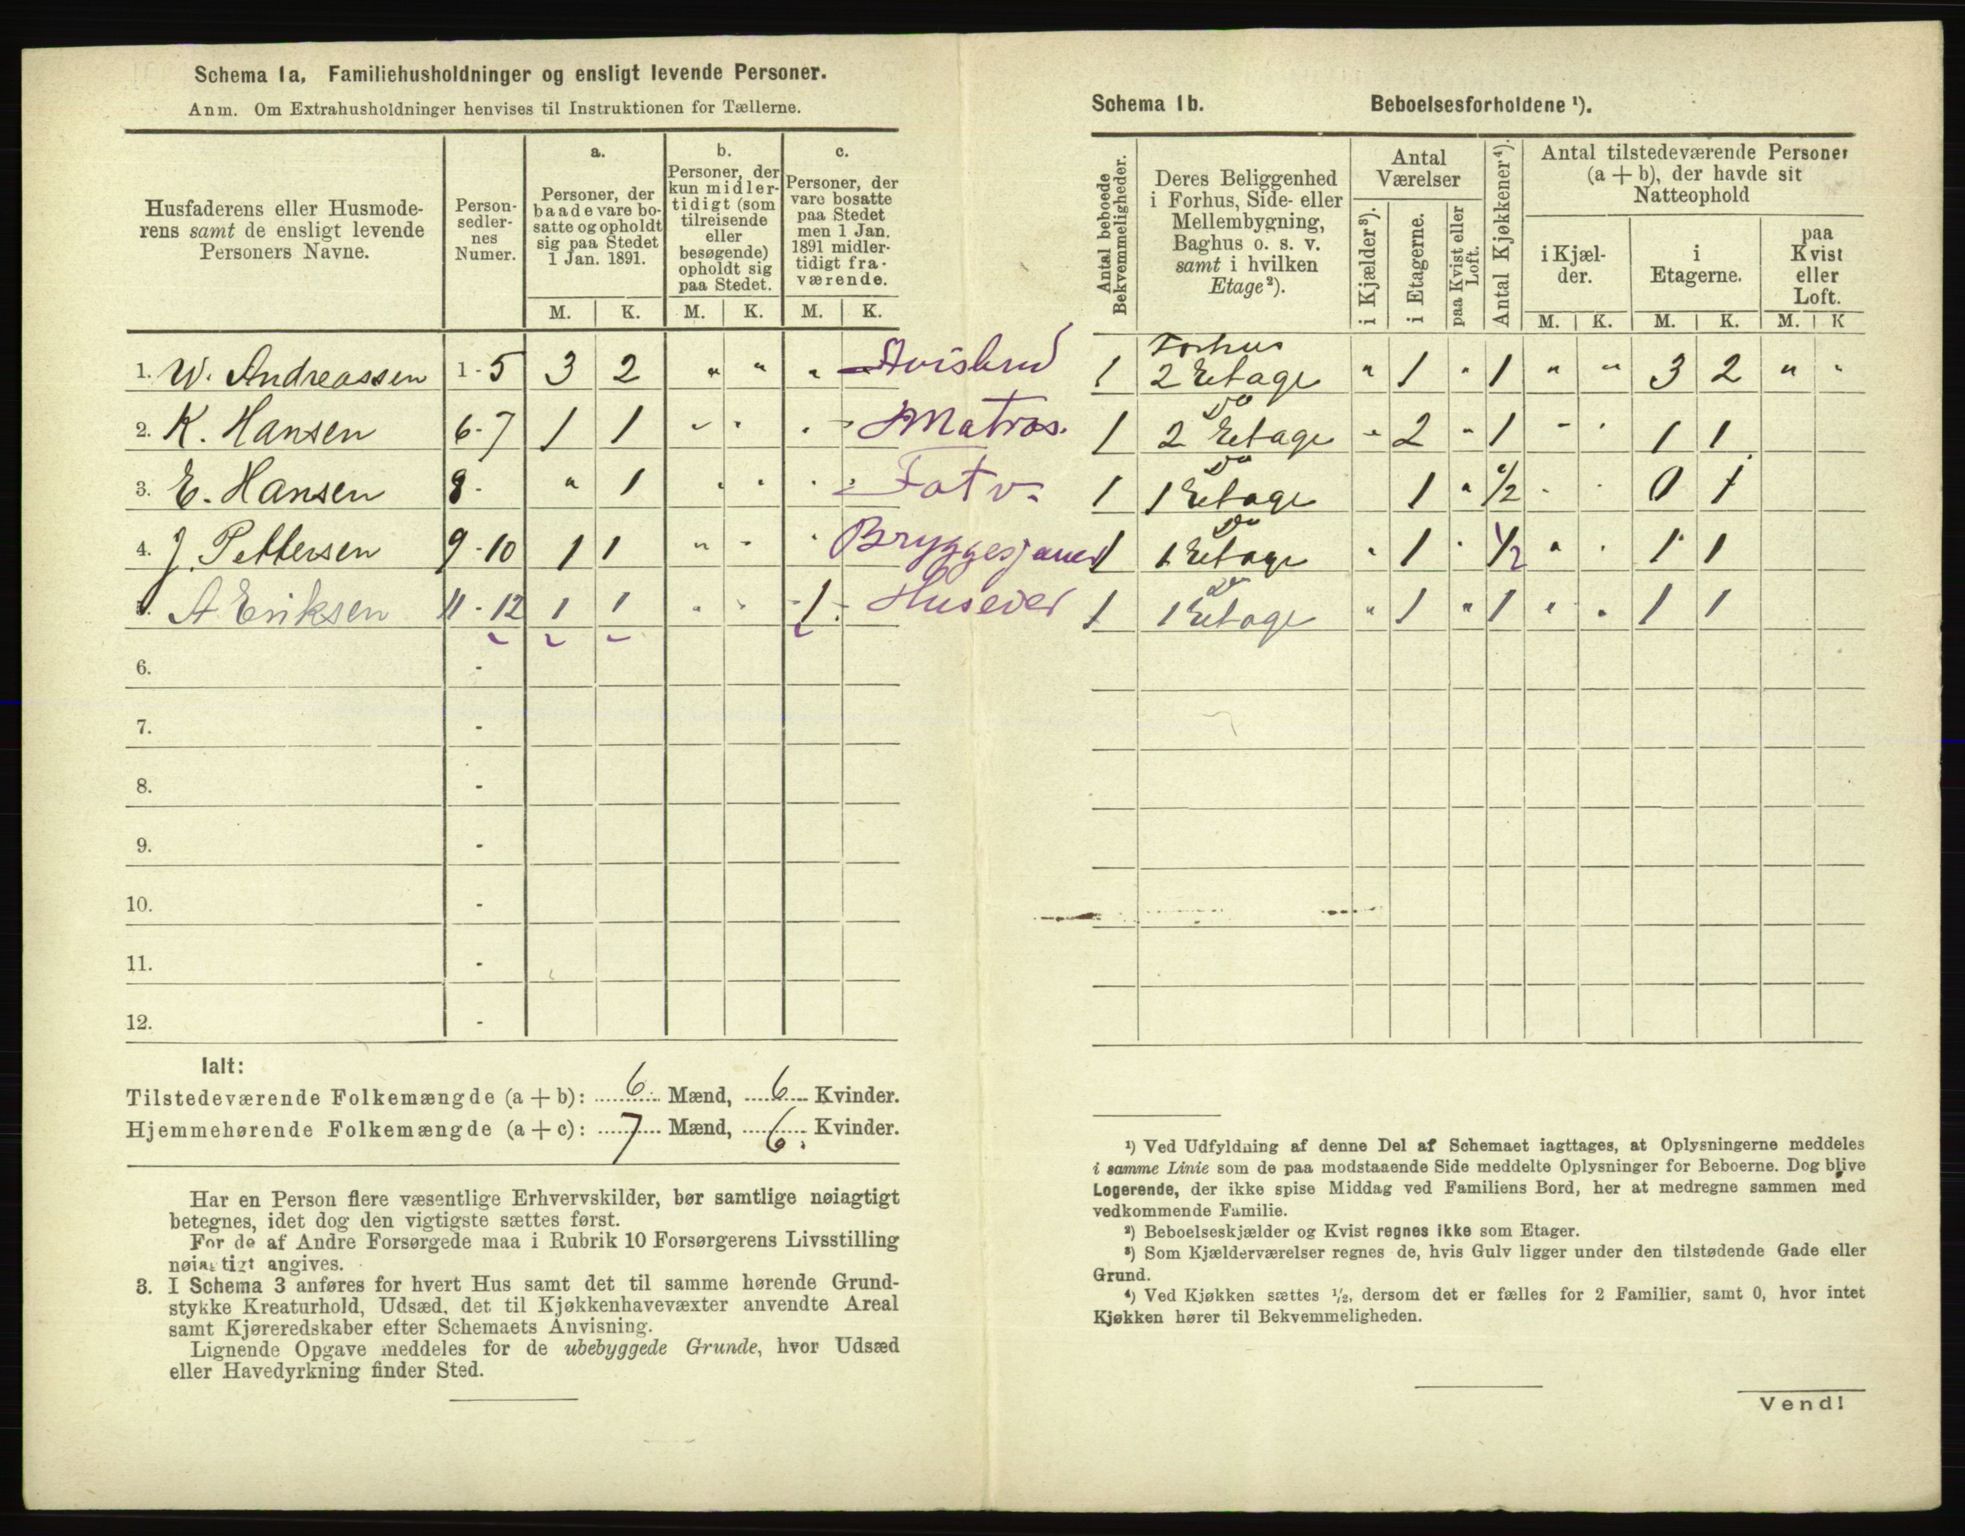 Schema 1a, Familiehusholdninger og ensligt levende Personer.
Anm. Om Extrahusholdninger henvises til Instruktionen for Tællerne.
Husfaderens eller Husmode-
rens samt de ensligt levende
Personers Navne.
Person-
sedler-
nes
Numer.
a.
Personer, der
baade vare bo-
satte og opholdt
sig paa Stedet
1 Jan. 1891.
b.
Personer, der
kun midler-
tidigt (som
tilreisende
eller
besøgende)
opholdt sig
paa Stedet.
c.
Personer, der
vare bosatte
paa Stedet
men 1 Jan.
1891 midler-
tidigt fra-
værende.
M. K. M. K. M. K.
1. W. Andreassen 1-5 3 2 " " " Avisbud
2. K. Hansen 6-7 1 1 " " " " Matros.
3. E. Hansen 8- " 1 " " " " Fatv.
4. J. Pettersen 9-10 1 1 " " " Bryggesjauer
5. A Eriksen 11-12 1 1 " " 1 - Huseier
6. -
7. -
8. -
9. -
10. -
11. -
12. -
Ialt:
Tilstedeværende Folkemængde (a + b): 6 Mænd, 6 Kvinder.
Hjemmehørende Folkemængde (a + c): 7 Mænd, 6. Kvinder.
Har en Person flere væsentlige Erhvervskilder, bør samtlige nøiagtigt
betegnes, idet dog den vigtigste sættes først.
For de af Andre Forsørgede maa i Rubrik 10 Forsørgerens Livsstilling
nøiagtigt angives.
3. I Schema 3 anføres for hvert Hus samt det til samme hørende Grund-
stykke Kreaturhold, Udsæd, det til Kjøkkenhavevæxter anvendte Areal
samt Kjøreredskaber efter Schemaets Anvisning.
Lignende Opgave meddeles for de ubebyggede Grunde, hvor Udsæd
eller Havedyrkning finder Sted.
Schema 1b. Beboelsesforholdene ¹).
Antal beboede
Bekvemmeligheder.
Deres Beliggenhed
i Forhus, Side- eller
Mellembygning,
Baghus o. s. v.
samt i hvilken
Etage²).
Antal
Værelser
i Kjælder³).
i Etagerne.
paa Kvist eller
Loft.
Antal Kjøkkener⁴).
Antal tilstedeværende Personer
(a + b), der havde sit
Natteophold
i Kjæl-
der.
i
Etagerne.
paa
Kvist
eller
Loft.
M. K. M. K. M. K
Forhus
1 2 Etage " 1 " 1 " " 3 2 " "
Do
1 2 Etage " 2 " 1 " " 1 1
Do
1 1 Etage 1 " 1/2 " " 0 1
Do
1 1 Etage " 1 " 1/2 " " 1 1
Do
1 1 Etage " 1 " 1 " " 1 1
¹) Ved Udfyldning af denne Del af Schemaet iagttages, at Oplysningerne meddeles
i samme Linie som de paa modstaaende Side meddelte Oplysninger for Beboerne. Dog blive
Logerende, der ikke spise Middag ved Familiens Bord, her at medregne sammen med
vedkommende Familie.
²) Beboelseskjælder og Kvist regnes ikke som Etager.
³) Som Kjælderværelser regnes de, hvis Gulv ligger under den tilstødende Gade eller
Grund.
⁴) Ved Kjøkken sættes ½, dersom det er fælles for 2 Familier, samt 0, hvor intet
Kjøkken hører til Bekvemmeligheden.
Vend!